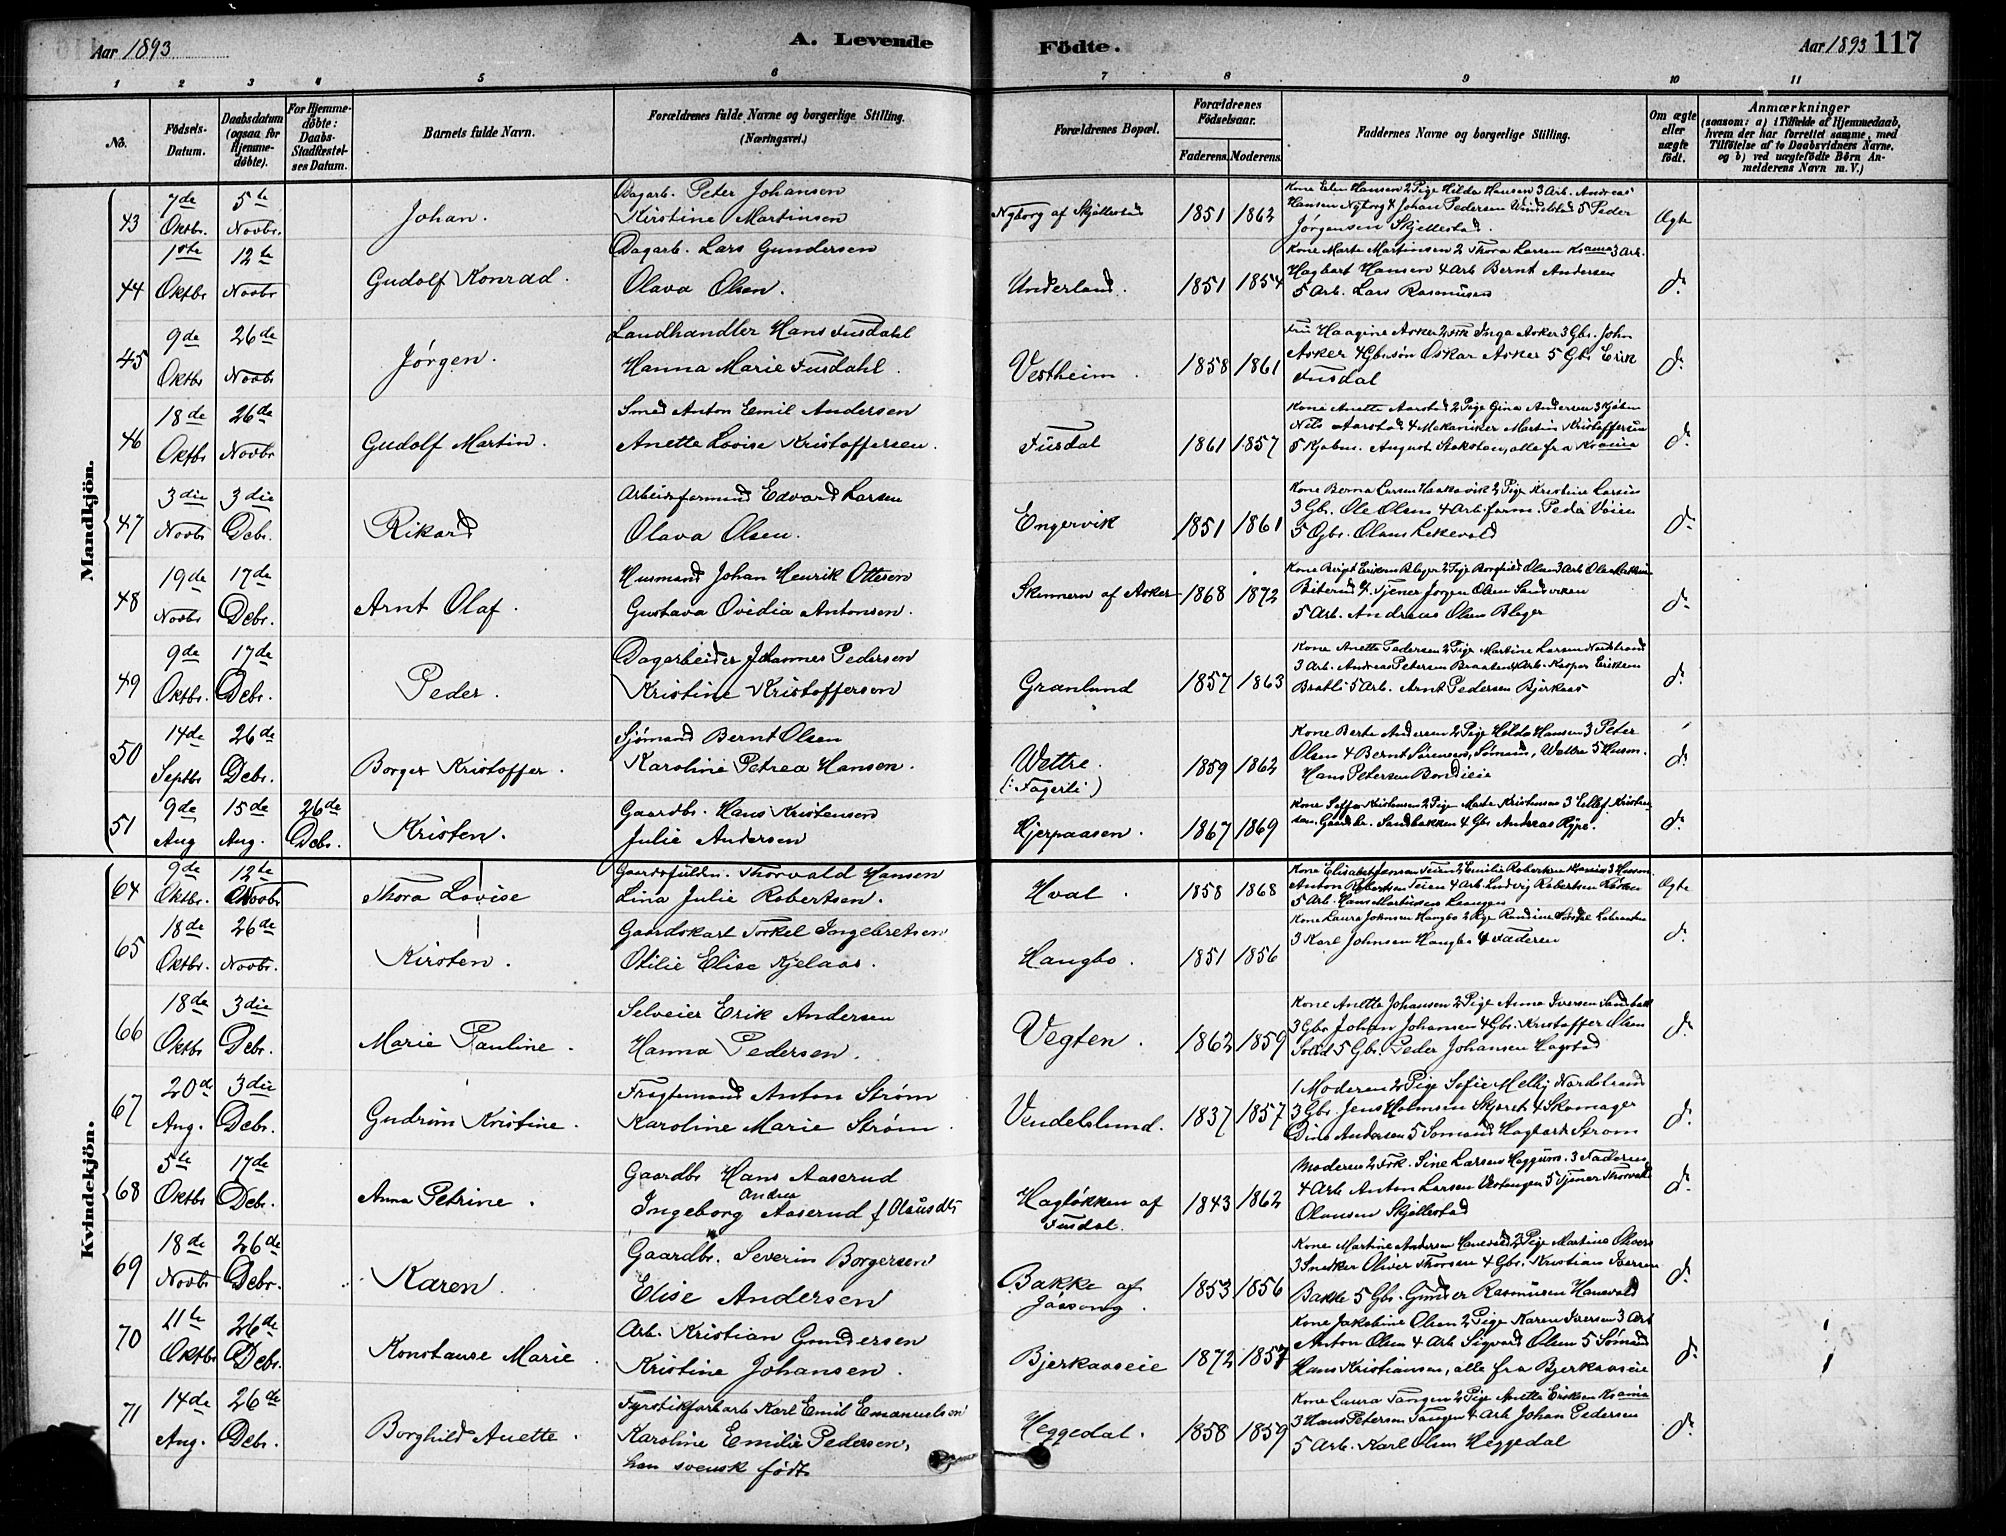 Aar 1893
A. Levende
Födte.
Aar 1893 117
1 2 3 4 5 6 7 8 9 10 11
No.
Födsels-Datum.
Daabsdatum (ogsaa for Hjemmedöbte).
For Hjemmedöbte: Daabs-Stadfæstelses Datum.
Barnets fulde Navn.
Forældrenes fulde Navne og borgerlige Stilling. (Næringsvei.)
Forældrenes Bopæl.
Forældrenes Födselsaar.
Faderens. Moderens.
Faddernes Navne og borgerlige Stilling.
Om ægte eller uægte födt.
Anmærkninger
(saasom: a) i Tilfælde af Hjemmedaab, hvem der har forrettet samme, med Tilföielse af to Daabsvidners Navne. og b) ved uægtefödte Börn Anmelderens Navn m. V.)
Mandkjön.
43 7de Oktbr. 5te Novbr. Johan. Dagarb. Peter Johansen
Kirstine Martinsen Nyborg af Skjellestad 1851 1862 Kone Elen Hansen 2 Pige Hilda Hansen 3 Arb. Andreas
Hansen Nyborg 4 Johan Pedersen 5 Peder
Jørgensen Skjellestad. Ægte
44 1ste Oktbr 12te Novbr Gudolf Konrad. Dagarb. Lars Gundersen
Olava Olsen. Underland. 1851 1854 Kone Marte Martinsen 2 Thora Larsen Krania 3 Arb.
Hagbart Hansen 4 Arb Bernt Andersen
5 Arb. Lars Rasmusen do
45 9de Oktbr 26de Novbr Jørgen. Landhandler Hans Fusdahl
Hanna Marie Fusdahl. Vestheim. 1858 1861 Fru Haagine Asker 2 Frk Inga Asker 3 Gbr. John
Asker 4 Gbrsøn Oskar Asker 5 Gbr Erik
Fusdal do
46 18de Oktbr 26de Novbr Gudolf Martin. Smed Anton Emil Andersen
Anette Lovise Kristoffersen. Fusdal 1861 1857 Kone Anette Aarstad 2 Pige Gina Andersen 3 Kjøbm
Nils Aarstad 4 Mekaniker Martin Kristoffersen
5 Kjøbm. August Stoksten, alle fra Krania do
47 3die Novbr 3die Debr. Rikard Arbeidsformand Edvard Larsen
Olava Olsen. Engervik 1851 1861 Kone Berna Larsen Haakavik 2 Pige Kristine Larsen
3 Gbr. Ole Olsen 4 Arb.form. Peder Vøien
5 Gbr. Olaus do
48 19de Novbr 17de Debr. Arnt Olaf. Husmand Johan Henrik Ottesen
Gustava Ovidia Antonsen. Skinnern af Asker 1868 1872 Kone Birgit Eriksen Bleger 2 Pige Borghild Olsen 3 Arb Ole
4 Tjener Jørgen Olsen Sandviken
5 Arb. Andreas Olsen Bleger do
49 9de Oktbr. 17de Debr. Peder. Dagarbeider Johannes Pedersen
Kristine Kristoffersen Granlund 1857 1863 Kone Anette Pedersen 2 Pige Martine Larsen Nordstrand
3 Arb. Andreas Petersen Braaten 4 Arb. Kasper Eriksen
Bratli 5 Arb. Arnt Pedersen Bjerkaas do
50 14de Septbr 26de Debr. Borger Kristoffer. Sjømand Bernt Olsen
Karoline Petrea Hansen. Wettre. (: Fagerli) 1859 1862 Kone Berte Andersen 2 Pige Hilda Hansen 3 Peter
Olsen 4 Bernt Sørensen, Sømænd, Wettre 5 Husm.
Hans Petersen Bondieie do
51 9de Aug 15de Aug. 26de Debr. Kristen. Gaardbr. Hans Kristensen
Julie Andersen Hjerpaasen. 1867 1869 Kone Soffie Kristensen 2 Pige Marte Kristensen 3 Ellef Kristen
sen, Gaardbr. Sandbakken 4 Gbr Andreas Rype. do
Kvindekjön.
64 9de Oktbr. 12te Novbr Thora Lovise Gaardsfuldm. Thorvald Hansen
Lina Julie Robertsen. Hval. 1858 1868 Kone Elisabet Jensen Teien 2 Emilie Robertsen 3 Husm.
Anton Robertsen Teien 4 Arb. Ludvig Robertsen
5 Arb. Hans Martinsen Ægte
65 18de Oktbr. 26de Novbr. Kirsten. Gaardskarl Torkel Ingebretsen
Otilie Elise Kjelaas. Hangbo. 1851 1856 Kone Laura Johnsen Hangbo 2 Pige Randine
3 Karl Johnsen Hangbo 4 Faderen do
66 18de Oktbr 3die Debr. Marie Pauline. Selveier Erik Andersen
Hanna Pedersen. Vegten. 1862 1859 Kone Anette Johansen 2 Pige Anna Iversen
3 Gbr Johan Johansen 4 Gbr. Kristoffer Olsen
5 Gbr. Peder Johansen Hogstad do
67 20de Aug. 3die Debr. Gudrun Kristine. Fragtemand Anton Strøm
Karoline Marie Strøm. Vendelslund. 1837 1857 1 Moderen 2 Pige Sofie Melby Nordstrand
3 Gbr. Jens Holmsen Skjøret 4 Skomager
Dines Andersen 5 Sømand Hagbart Strøm do
68 5te Oktbr 17de Debr. Anna Petrine. Gaardbr Hans Aaserud
Ingeborg Andrea Aaserud f. Olausdtr Hagløkken af Fusdal. 1843 1862 Moderen 2 Frk. Sine Larsen Heggum. 3 Faderen
4 Arb Anton Larsen 5 Tjener Thorvald
Olausen Skjellestad do
69 18de Novbr 26de Debr. Karen. Gaardbr. Severin Borgersen
Elise Andersen Bakke af 1853 1856 Kone Martine Andersen Hanevold 2 Pige Martine Olsen
3 Snedker Oliver Thorsen 4 Gbr. Kristian Iversen
Bakke 5 Gbr. Gunder Rasmusen Hanevold do
70 11te Oktbr 26de Debr. Konstanse Marie. Arb. Kristian Gundersen
Kristine Johansen. Bjerkaaseie 1872 1857 Kone Jakobine Olsen 2 Pige Karen Iversen 3 Arb
Anton Olsen 4 Arb Sigvard Olsen 5 Sømand
Hans Kristiansen, alle fra Bjerkaaseie do
71 14de Aug. 26de Debr. Borghild Anette. Fyrstikfarbarb Karl Emil Emanuelsen
Karoline Emilie Pedersen,
han svensk født Heggedal. 1858 1859 Kone Laura Tangen 2 Pige Anette Eriksen Krania
3 Hans Petersen Tangen 4 Arb Johan Pedersen
5 Arb. Karl Olsen Heggedal do